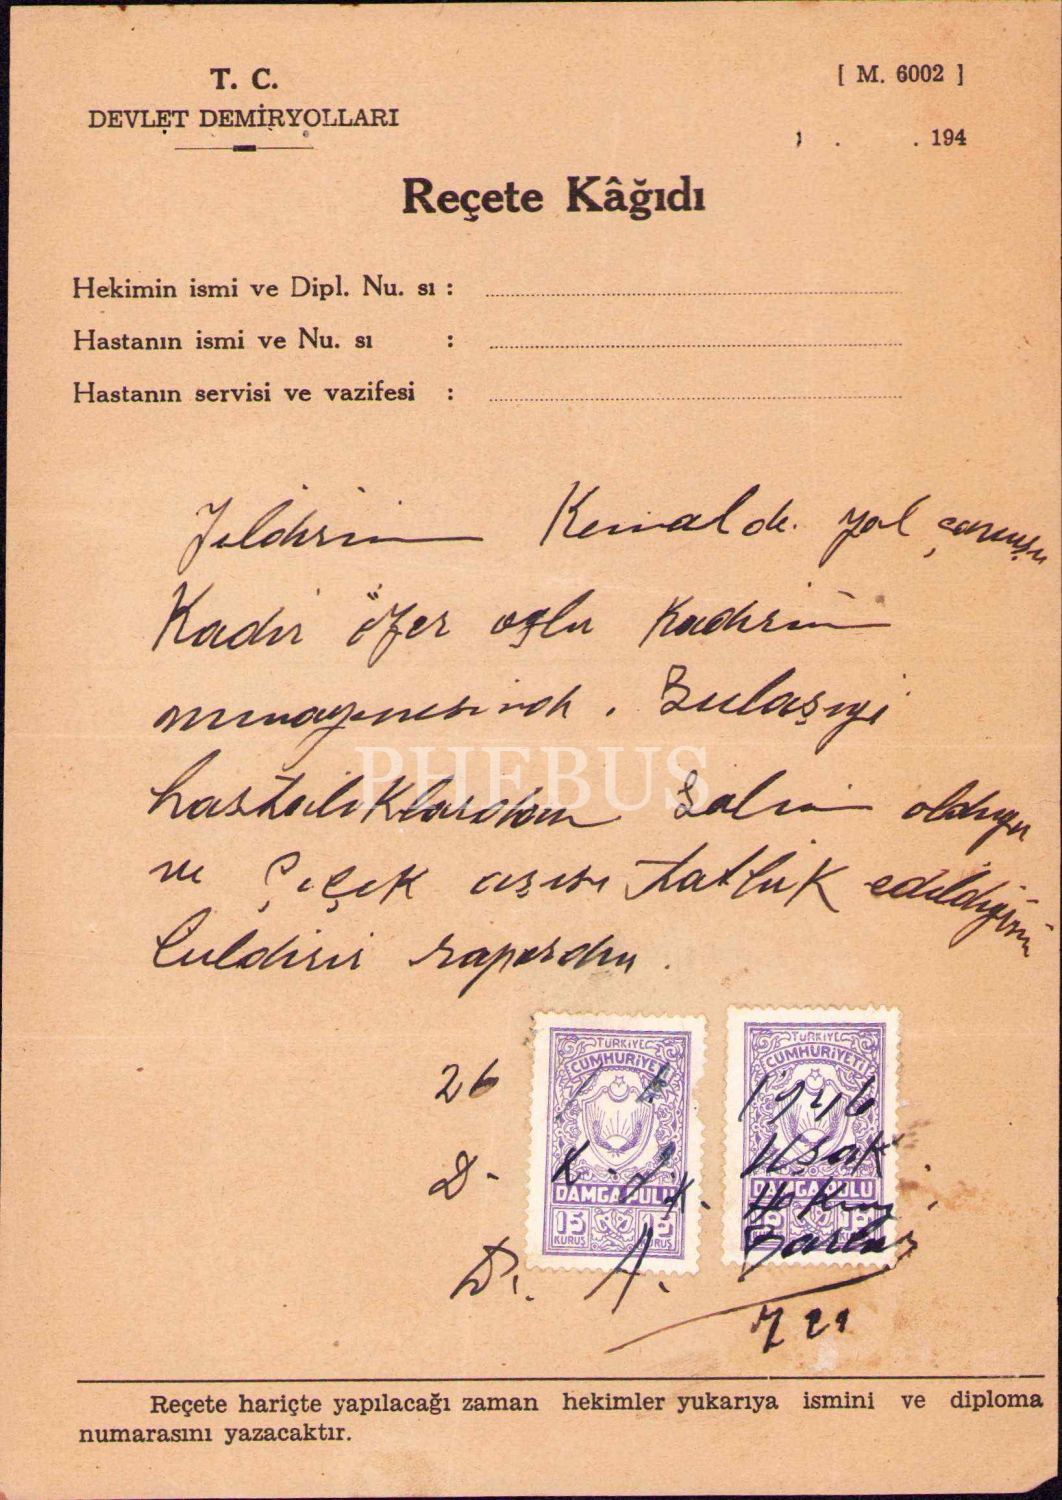 T. C.
DEVLET DEMİRYOLLARI
[ M. 6002 ]
. . 194
Reçete Kâğıdı
Hekimin ismi ve Dipl. Nu. sı :
Hastanın ismi ve Nu. sı :
Hastanın servisi ve vazifesi :
Yıldırım Kemalde. yol çavuşu
Kadir özer oğlu Kadirin
muayenesinde. Bulaşıyı
hastalıklardan Salim olduğu
ve Çiçek aşısı tatbik edildiğini
bildirir rapordur.
PHEBUS
TÜRKİYE CUMHURİYETİ
DAMGA PULU
15 KURUŞ 15 KURUŞ
TÜRKİYE CUMHURİYETİ
DAMGA PULU
26 1946
D. Uşak
Dr. A.
Reçete hariçte yapılacağı zaman hekimler yukarıya ismini ve diploma
numarasını yazacaktır.